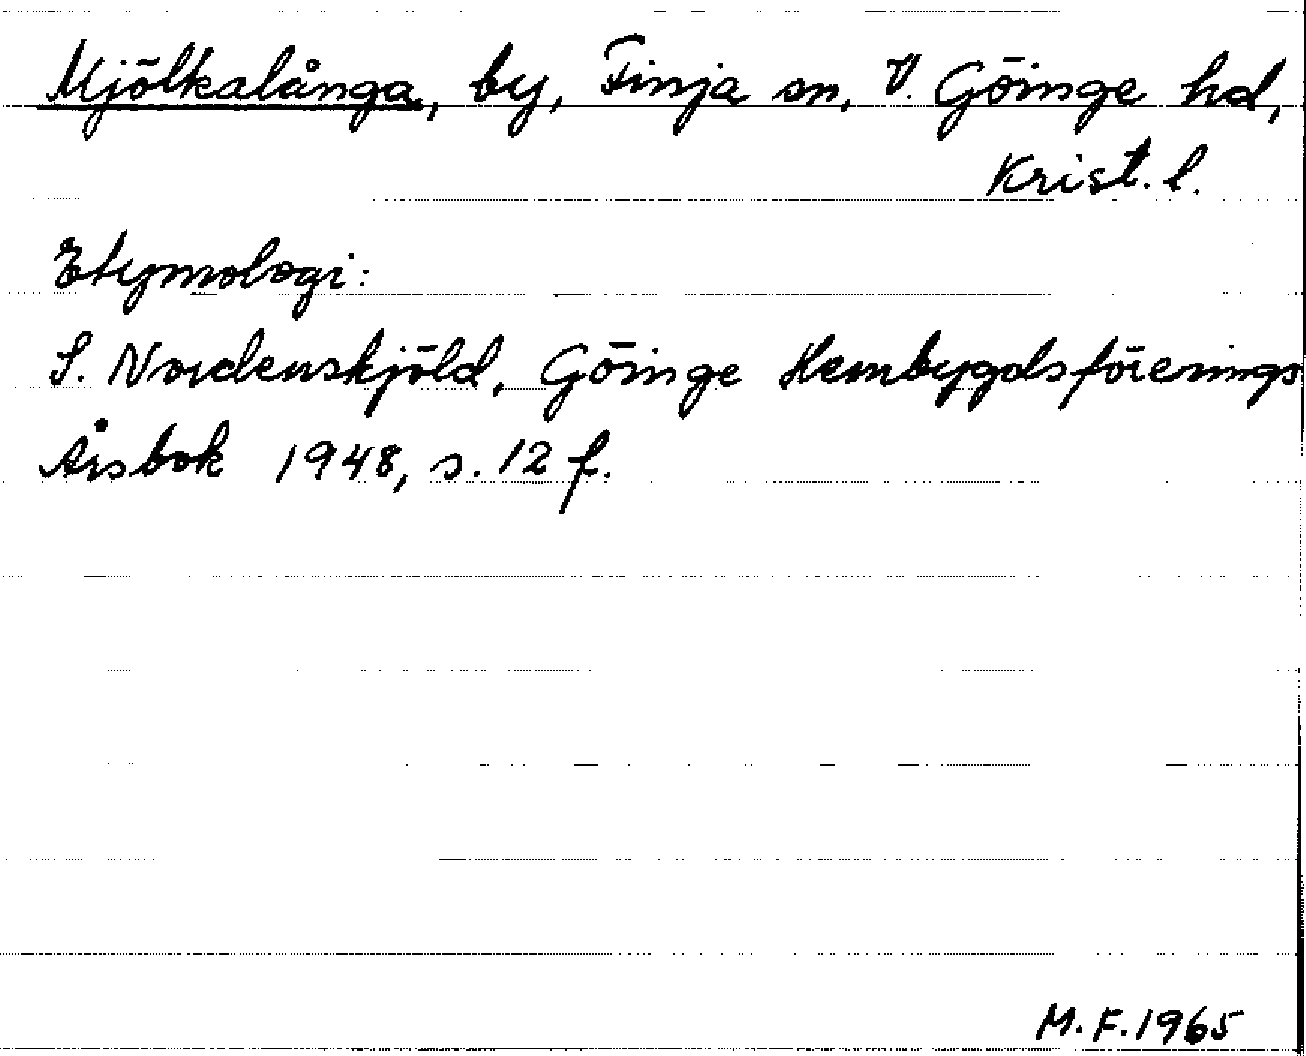 Mjölkalånga, by, Finja sn, V. Göinge hd,
Krist. l.
Etymologi:
S. Nordenskjöld, Göinge Hembygdsförenings
Årsbok 1948, s. 12 f.
M.F. 1965